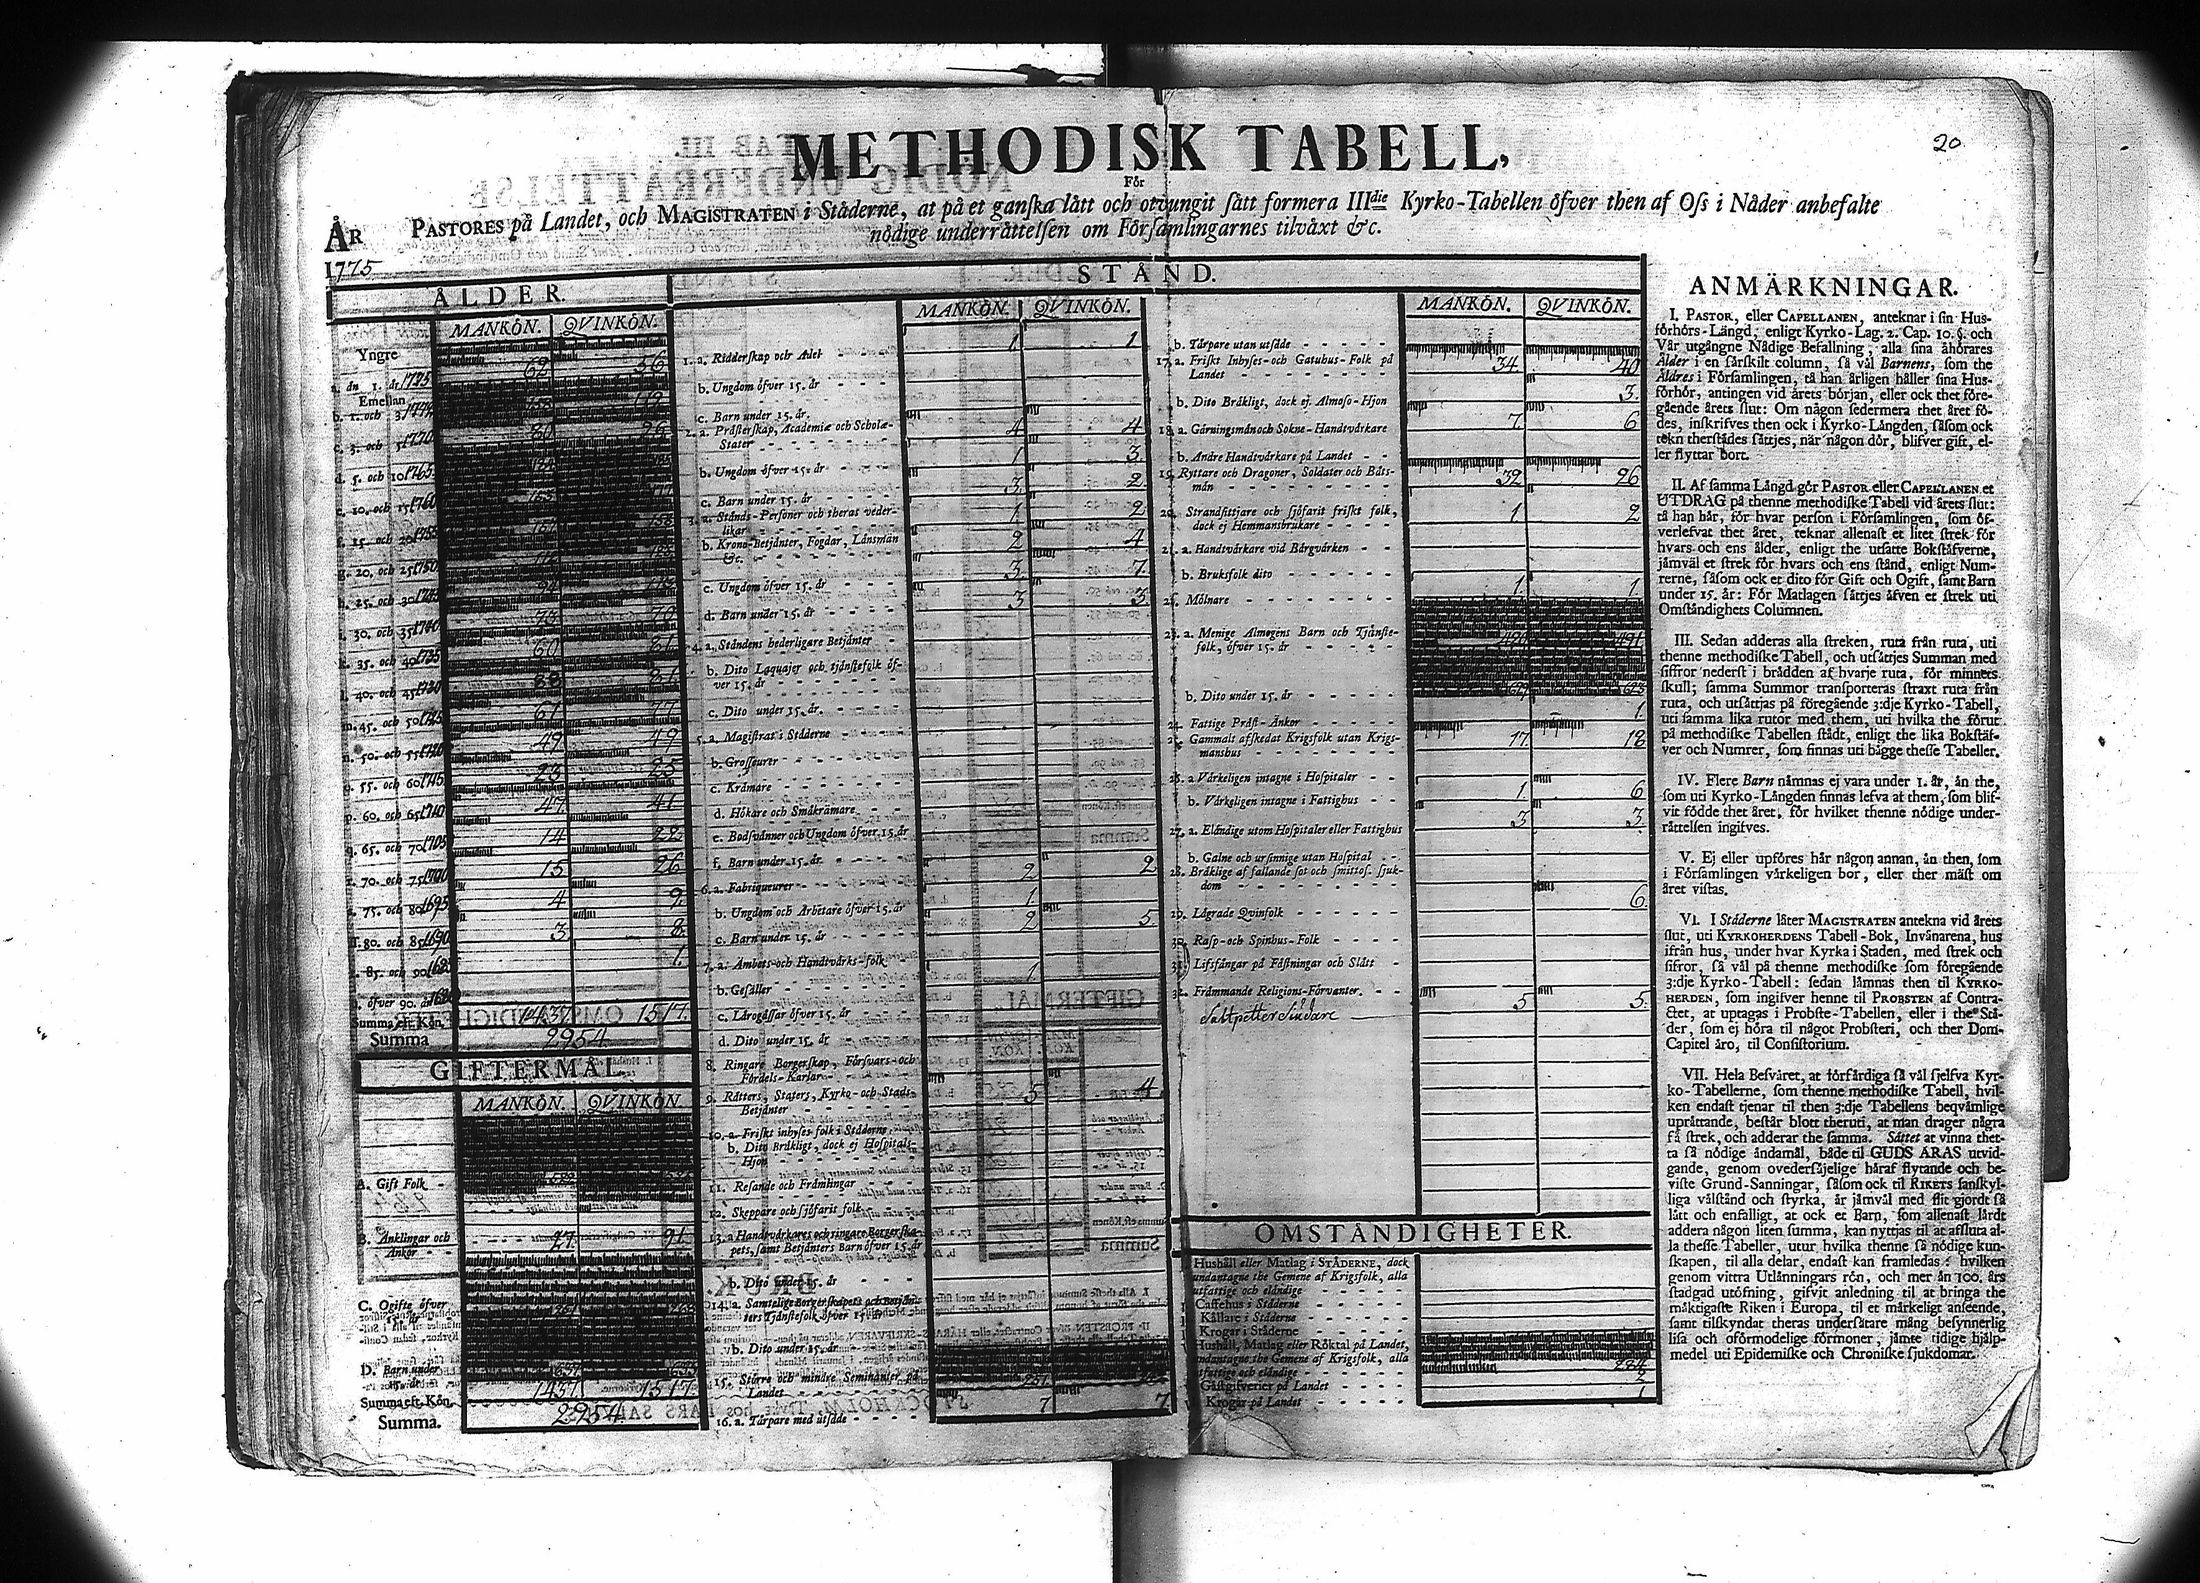 20
METHODISK TABELL,
För
PASTORES på Landet, och MAGISTRATEN i Städerne, at på et ganska lätt och otvungit sätt formera IIIdie Kyrko-Tabellen öfver then af Oss i Nåder anbefalte
nödige underrättelsen om Församlingarnes tilväxt &c.
ÅR
1775
ÅLDER.
MANKÖN. QVINKÖN.
Yngre
a. än 1. år 1775 62 56
Emellan
b. 1. och 3.
c. 3. och 5 1770 80 96
d. 5. och 10 1765
e. 10. och 15 1760
f. 15. och 20 1755
g. 20. och 25 1750
h. 25. och 30 94
i. 30. och 35 1740 73
k. 35. och 40 1735 60 81
l. 40. och 45 1730
m. 45. och 50 1725 61 77
n. 50. och 55 1720 49 49
o. 55. och 60 1715 23 25
p. 60. och 65 1710 47 41
q. 65. och 70 1705 14 22
r. 70. och 75 1700 15 26
s. 75. och 80 1695 4 9
ſſ. 80. och 85 1690 3 8
85. och 90 1
öfver 90. år
Summa eft. Kön. 1437 1517
Summa 2954
GIFTERMÅL.
MANKÖN. QVINKÖN
A. Gift Folk
B. Änklingar och
Änkor 27 91
C. Ogifte öfver
15. år
D. Barn under
15. år
Summa eft. Kön. 1437 1517
Summa. 2954
STÅND.
MANKÖN. QVINKÖN.
1. a. Ridderskap och Adel 1 1
b. Ungdom öfver 15. år
c. Barn under 15. år.
2. a. Prästerskap, Academiæ och Scholæ-
Stater 4 4
b. Ungdom öfver 15. år 1 3
c. Barn under 15. år 3 2
3. a. Stånds-Personer och theras veder-
likar 1 2
b. Krono-Betjänter, Fogdar, Länsmän
&c. 2 4
c. Ungdom öfver 15. år 3 7
d. Barn under 15. år 3 3
4. a. Ståndens hederligare Betjänter
b. Dito Laquajer och tjänstefolk öf-
ver 15. år
c. Dito under 15. år.
5. a. Magistrat i Städerne
b. Grosseurer
c. Krämare
d. Hökare och Småkrämare
e. Bodsvänner och Ungdom öfver 15. år
f. Barn under 15. år. 2 2
6. a. Fabriqueurer 1
b. Ungdom och Arbetare öfver 15. år 2 5
c. Barn under 15. år
7. a. Ämbets- och Handtvärks-folk 1
b. Gesäller
c. Lärogåssar öfver 15. år
d. Dito under 15. år
8. Ringare Borgerskap, Försvars- och
Fördels-Karlar 3 4
9. Rätters, Staters, Kyrko- och Stads-
Betjänter
10. a. Friskt inhyses folk i Städerne
b. Dito Bräkligt, dock ej Hospitals-
Hjon
11. Resande och Främlingar
12. Skeppare och sjöfarit folk
13. a. Handtvärkares och ringare Borgerska-
pets, samt Betjänters Barn öfver 15. år
b. Dito under 15. år
14. a. Samtelige Borgerskapets och Betjän-
ters Tjänstefolk öfver 15. år
b. Dito under 15. år
15. Större och mindre Seminanter på
Landet
16. a. Tärpare med utsäde 7 7
MANKÖN. QVINKÖN.
b. Tärpare utan utsäde
17. a. Friskt Inhyses- och Gatuhus-Folk på
Landet 34 40
b. Dito Bräkligt, dock ej Almoso-Hjon 3
18. a. Gärningsmän och Sokne-Handtvärkare 7 6
b. Andre Handtvärkare på Landet
19. Ryttare och Dragoner, Soldater och Båts-
män 32 26
20. Strandsittjare och sjöfarit friskt folk,
dock ej Hemmansbrukare 1 2
21. a. Handtvärkare vid Bärgvärken
b. Bruksfolk dito 1 1
22. Mölnare
23. a. Menige Almogens Barn och Tjänste-
folk, öfver 15. år 491
b. Dito under 15. år
24. Fattige Präst-Änkor 1
25. Gammalt afskedat Krigsfolk utan Krigs-
manshus 17 18
26. a. Värkeligen intagne i Hospitaler
b. Värkeligen intagne i Fattighus 1 6
27. a. Eländige utom Hospitaler eller Fattighus 3 3
b. Galne och ursinnige utan Hospital
28. Bräklige af fallande sot och smittos. sjuk-
dom
29. Lägrade Qvinfolk 6
30. Rasp- och Spinhus-Folk
31. Lifsfångar på Fästningar och Slått
32. Främmande Religions-Förvanter.
Saltpetter Siudare 5 5
OMSTÄNDIGHETER.
Hushåll eller Matlag i STÄDERNE, dock
undantagne the Gemene af Krigsfolk, alla
utfattige och eländige
Caffehus i Städerne
Källare i Städerne
Krogar i Städerne
Hushåll, Matlag eller Röktal på Landet,
undantagne the Gemene af Krigsfolk, alla
utfattige och eländige 284
Gästgifverier på Landet 2
Krogar på Landet 1
ANMÄRKNINGAR.
I. PASTOR, eller CAPELLANEN, anteknar i sin Hus-
förhörs-Längd, enligt Kyrko-Lag. 2. Cap. 10. §. och
Vår utgångne Nådige Befallning, alla sina åhörares
Ålder i en särskilt column, så väl Barnens, som the
Äldres i Församlingen, tå han årligen håller sina Hus-
förhör, antingen vid årets början, eller ock thet före-
gående årets slut: Om någon sedermera thet året fö-
des, inskrifves then ock i Kyrko-Längden, såsom ock
tekn therstädes sättjes, när någon dör, blifver gift, el-
ler flyttar bort.
II. Af samma Längd gör PASTOR eller CAPELLANEN et
UTDRAG på thenne methodiske Tabell vid årets slut:
tå han här, för hvar person i Församlingen, som öf-
verlefvat thet året, teknar allenast et litet strek för
hvars och ens ålder, enligt the utsatte Bokstäfverne,
jämväl et strek för hvars och ens stånd, enligt Num-
rerne, såsom ock et dito för Gift och Ogift, samt Barn
under 15. år: För Matlagen sättjes äfven et strek uti
Omständighets Columnen.
III. Sedan adderas alla streken, ruta från ruta, uti
thenne methodiske Tabell, och utsättjes Summan med
siffror nederst i brädden af hvarje ruta, för minnets
skull; samma Summor transporteras straxt ruta från
ruta, och utsättjas på föregående 3:dje Kyrko-Tabell,
uti samma lika rutor med them, uti hvilka the förut
på methodiske Tabellen städt, enligt the lika Bokstäf-
ver och Numrer, som finnas uti bägge thesse Tabeller.
IV. Flere Barn nämnas ej vara under 1. år, än the,
som uti Kyrko-Längden finnas lefva af them, som blif-
vit födde thet året, för hvilket thenne nödige under-
rättelsen ingifves.
V. Ej eller upföres här någon annan, än then, som
i Församlingen värkeligen bor, eller ther mäst om
året vistas.
VI. I Städerne låter MAGISTRATEN antekna vid årets
slut, uti KYRKOHERDENS Tabell-Bok, Invånarena, hus
ifrån hus, under hvar Kyrka i Staden, med strek och
sifror, så väl på thenne methodiske som föregående
3:dje Kyrko-Tabell: sedan lämnas then til KYRKO-
HERDEN, som ingifver henne til PROBSTEN af Contra-
ctet, at uptagas i Probste-Tabellen, eller i the Stä-
der, som ej höra til något Probsteri, och ther Dom-
Capitel äro, til Consistorium.
VII. Hela Besväret, at förfärdiga så väl sjelfva Kyr-
ko-Tabellerne, som thenne methodiske Tabell, hvil-
ken endast tjenar til then 3:dje Tabellens beqvämlige
uprättande, består blott theruti, at man drager några
få strek, och adderar the samma. Sättet at vinna thet-
ta så nödige ändamål, både til GUDS ÄRAS utvid-
gande, genom ovedersäjelige häraf flytande och be-
viste Grund-Sanningar, såsom ock til RIKETS sanskyl-
liga välstånd och styrka, är jämväl med flit gjordt så
lätt och enfalligt, at ock et Barn, som allenast lärdt
addera någon liten summa, kan nyttjas til at afsluta al-
la thesse Tabeller, utur hvilka thenne så nödige kun-
skapen, til alla delar, endast kan framledas: hvilken
genom vittra Utlänningars rön, och mer än 100. års
stadgad utöfning, gifvit anledning til at bringa the
mäktigaste Riken i Europa, til et märkeligt anseende,
samt tilskyndat theras undersåtare mång besynnerlig
lisa och oförmodelige förmoner, jämte tidige hjälp-
medel uti Epidemiske och Chroniske sjukdomar.